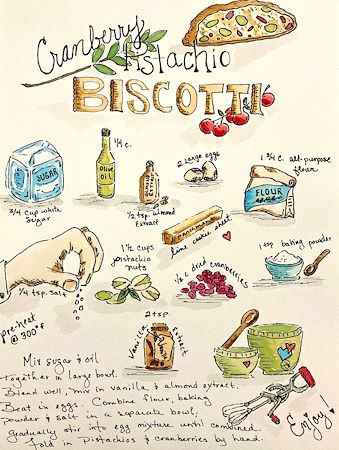 Cranberry
Pistachio
BISCOTTI
SUGAR
3/4 cup white
sugar
1/4 c.
OLIVE
OIL
Almond
Extract
1/2 tsp. almond
Extract
2 large eggs
1 3/4 c. all-purpose
flour
FLOUR
cinnamon
line cookie sheet
1/4 tsp. salt
1 1/2 cups
pistachio
nuts
1/2 c dried cranberries
1 tsp baking powder
pre-heat
@ 300°f
2 tsp.
Vanilla Extract
Mix sugar & oil
Together in large bowl.
Blend well, mix in vanilla & almond extract.
Beat in eggs. Combine flour, baking
powder & salt in a separate bowl;
gradually stir into egg mixture until combined.
fold in Pistachios & cranberries by hand.
Enjoy!